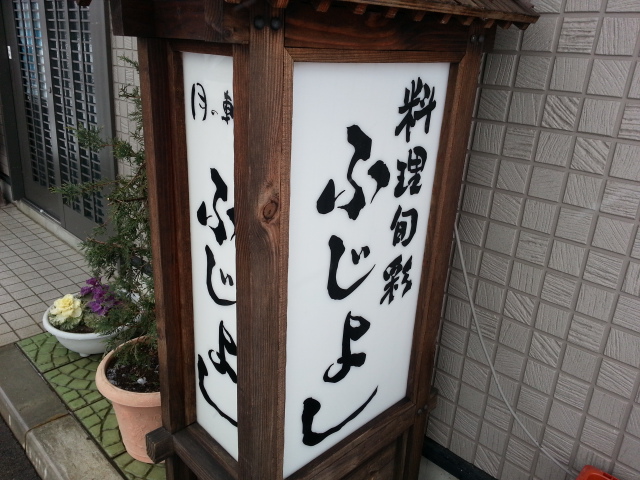 料理旬彩
ふじよし
月の軒
ふじよし